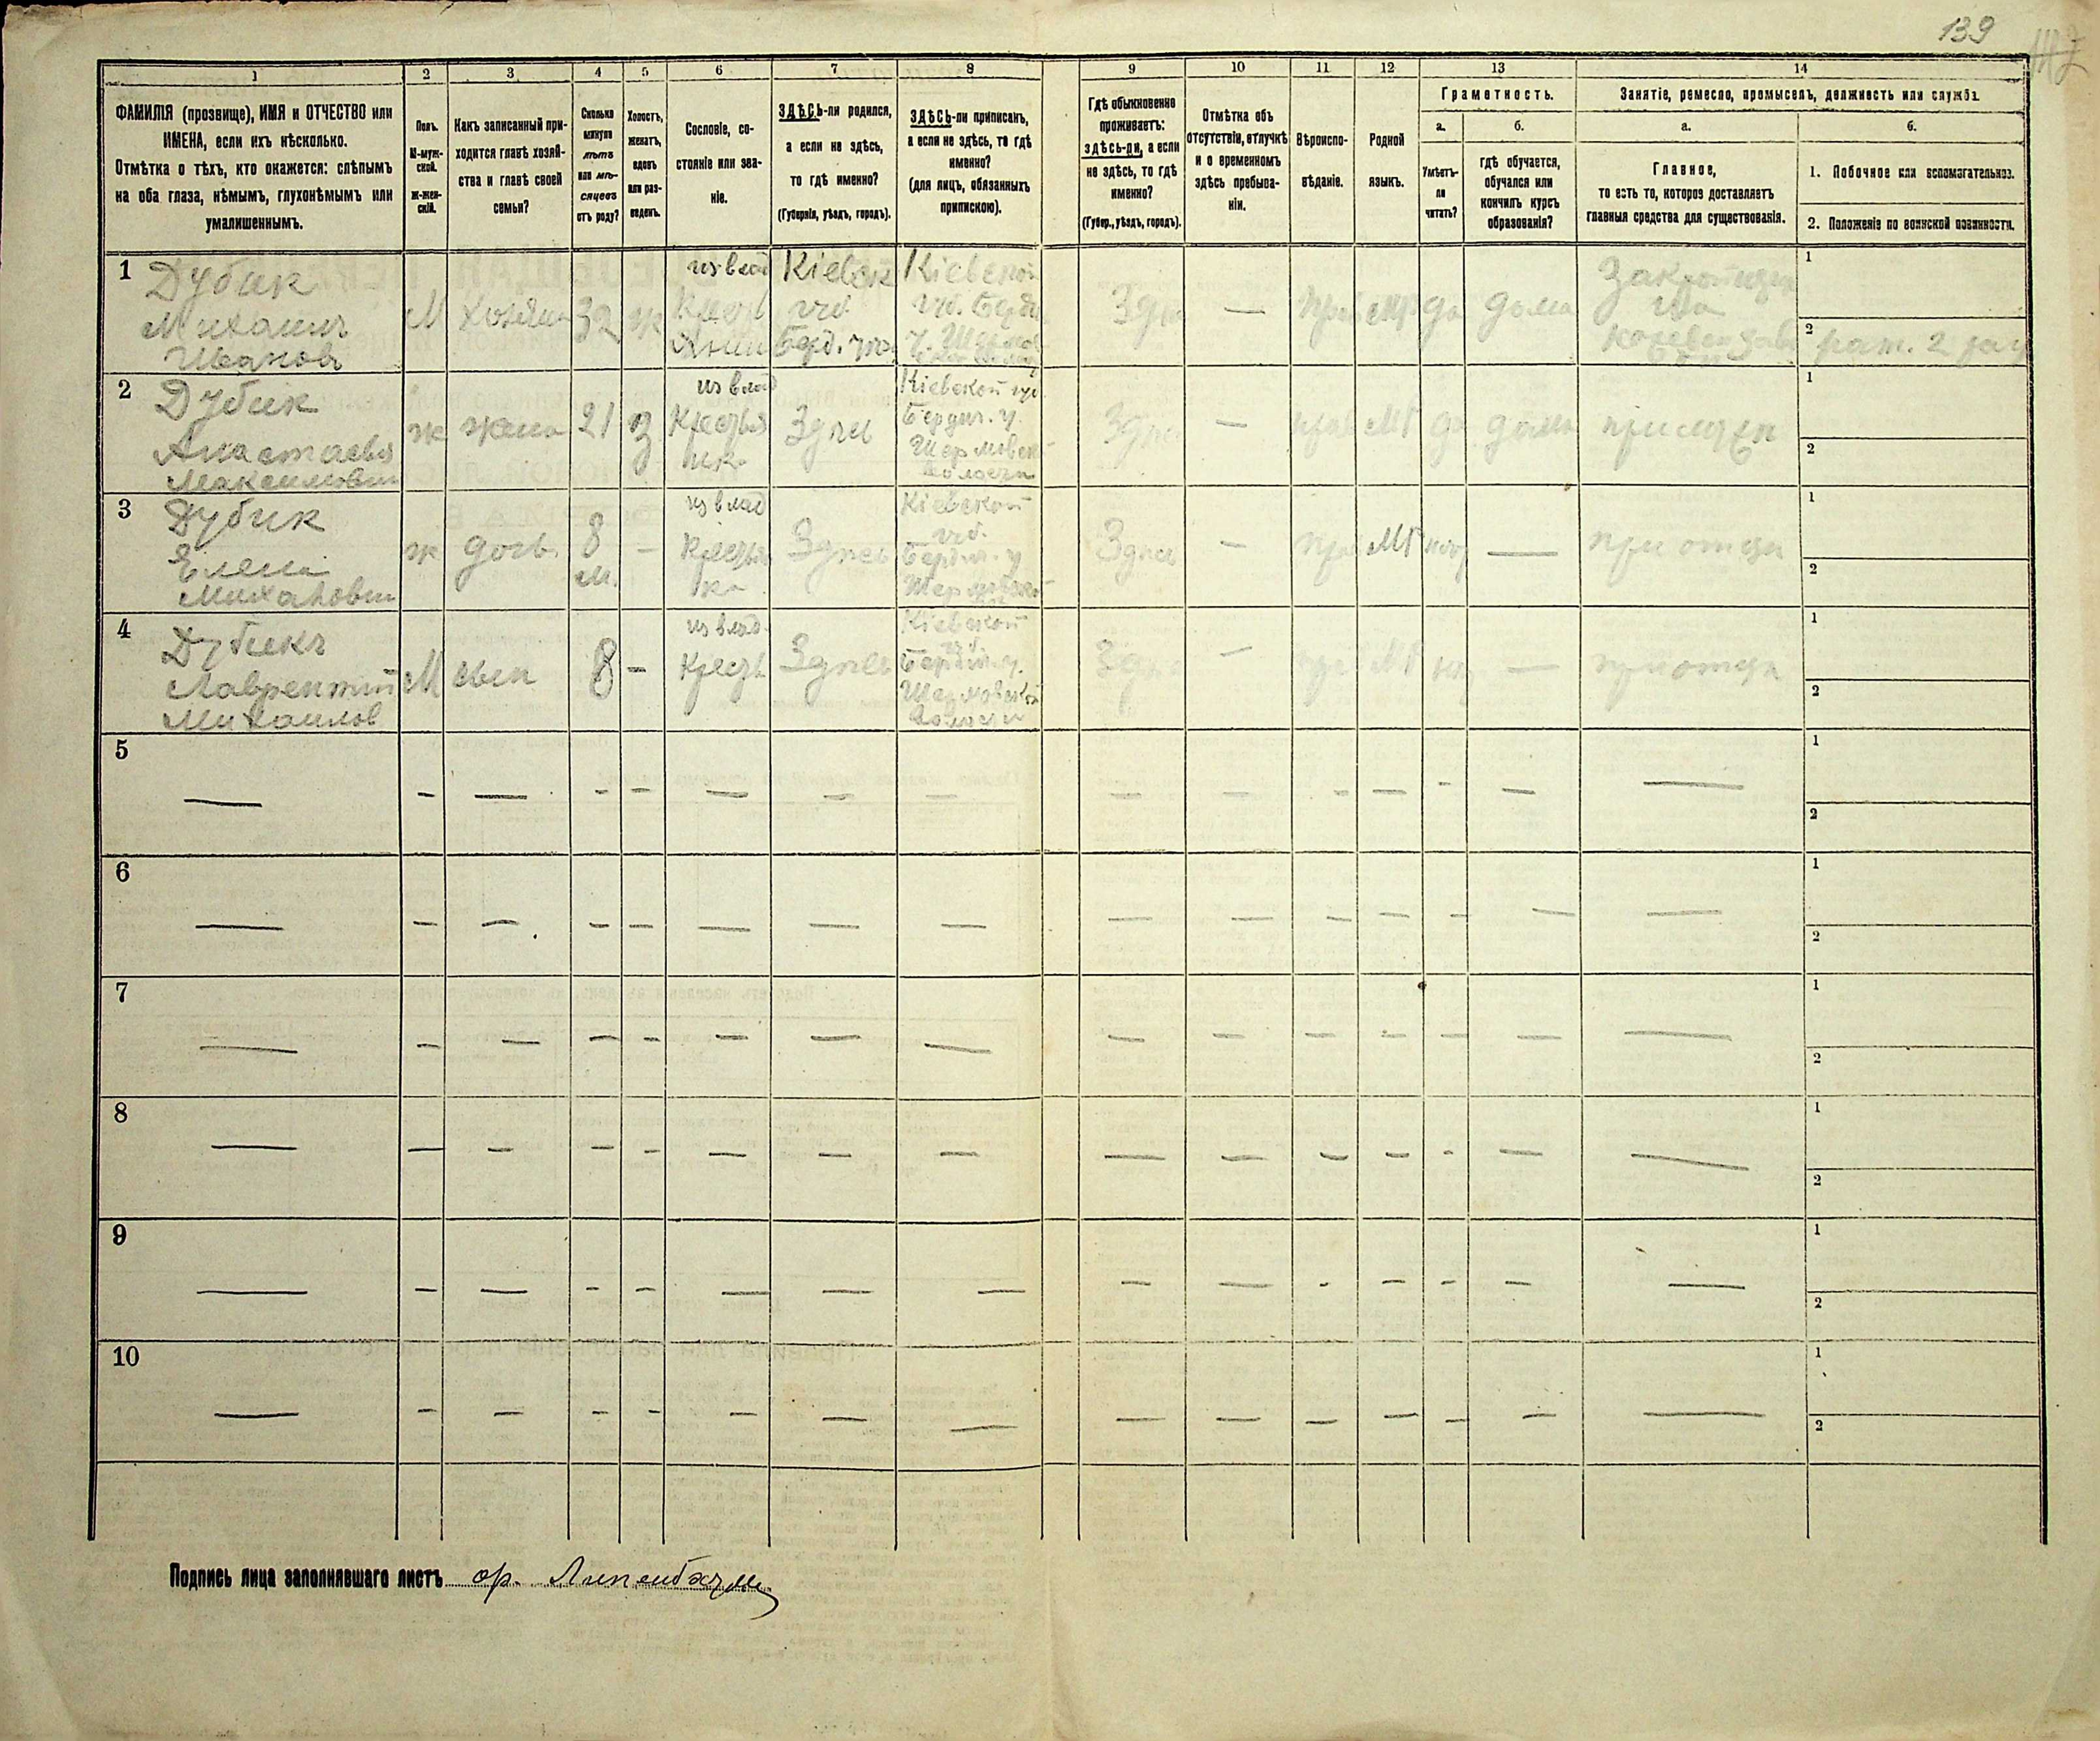 139
1 2 3 4 5 6 7 8 9 10 11 12 13 14
ФАМИЛІЯ (прозвище), ИМЯ и ОТЧЕСТВО или
ИМЕНА, если ихъ нѣсколько.
Отмѣтка о тѣхъ, кто окажется: слѣпымъ
на оба глаза, нѣмымъ, глухонѣмымъ или
умалишеннымъ.
Полъ.
М-муж-
ской.
ж-жен-
скій.
Какъ записанный при-
ходится главѣ хозяй-
ства и главѣ своей
семьи?
Сколько
минуло
лѣтъ
или мѣ-
сяцевъ
отъ роду?
Холостъ,
женатъ,
вдовъ
или раз-
веденъ.
Сословіе, со-
стояніе или зва-
ніе.
ЗДѢСЬ-ли родился,
а если не здѣсь,
то гдѣ именно?
(Губернія, уѣздъ, городъ).
ЗДѢСЬ-ли приписанъ,
а если не здѣсь, то гдѣ
именно?
(для лицъ, обязанныхъ
припискою).
Гдѣ обыкновенно
проживаетъ:
здѣсь-ли, а если
не здѣсь, то гдѣ
именно?
(Губер., уѣздъ, городъ).
Отмѣтка объ
отсутствіи, отлучкѣ
и о временномъ
здѣсь пребыва-
ніи.
Вѣроиспо-
вѣданіе.
Родной
языкъ.
Грамотность.
а.
Умѣетъ-
ли
читать?
б.
гдѣ обучается,
обучался или
кончилъ курсъ
образованія?
Занятіе, ремесло, промыселъ, должность или служба.
а.
Главное,
то есть то, которое доставляетъ
главныя средства для существованія.
б.
1. Побочное или вспомогательное.
2. Положеніе по воинской повинности.
1
Дубик
Михаилъ
Иванов
М
хозяин
32
ж
из влад
Кіевск
губ.
Берд. у
Кіевской
губ. Берд
—
да
дома
1
2 рат. 2 раз
2
Дубик
Анастасья
Максимовн
ж
жена
21
З
из влад
Крестья
нка
Здесь
Кіевской губ
Бердич. у.
Шермовск
волости
Здесь
—
прав
МР
да
дома
при муже
1
2
3
Дубик
Елена
Михайловн
ж
дочь
8
м.
—
из влад
Крестьян
ка
Здесь
Кіевской
губ.
Бердич. у
Шермовской
Здесь
—
прав
МР
—
при отце
1
2
4
Дубикъ
Лаврентий
Михаилов
М
сын
8
—
из влад.
Крестьян
Здесь
Кіевской
губ.
Бердич. у.
Шермовской
волости
Здесь
—
прав
МР
—
при отце
1
2
5 — — — — — — — — — — — — — — — 1
2
6 — — — — — — — — — — — — — — — 1
2
7 — — — — — — — — — — — — — — — 1
2
8 — — — — — — — — — — — — — — — 1
2
9 — — — — — — — — — — — — — — — 1
2
10 — — — — — — — — — — — — — — — 1
2
Подпись лица заполнявшаго листъ